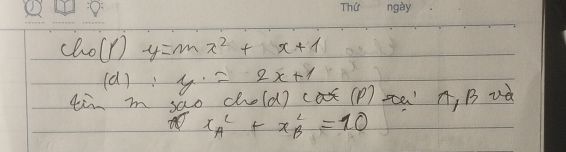 Thứ ngày
cho (P) y = mx² + x + 1
(d) : y = 2x + 1
tìm m sao cho (d) cắt (P) tại A, B và
x_A² + x_B² = 10